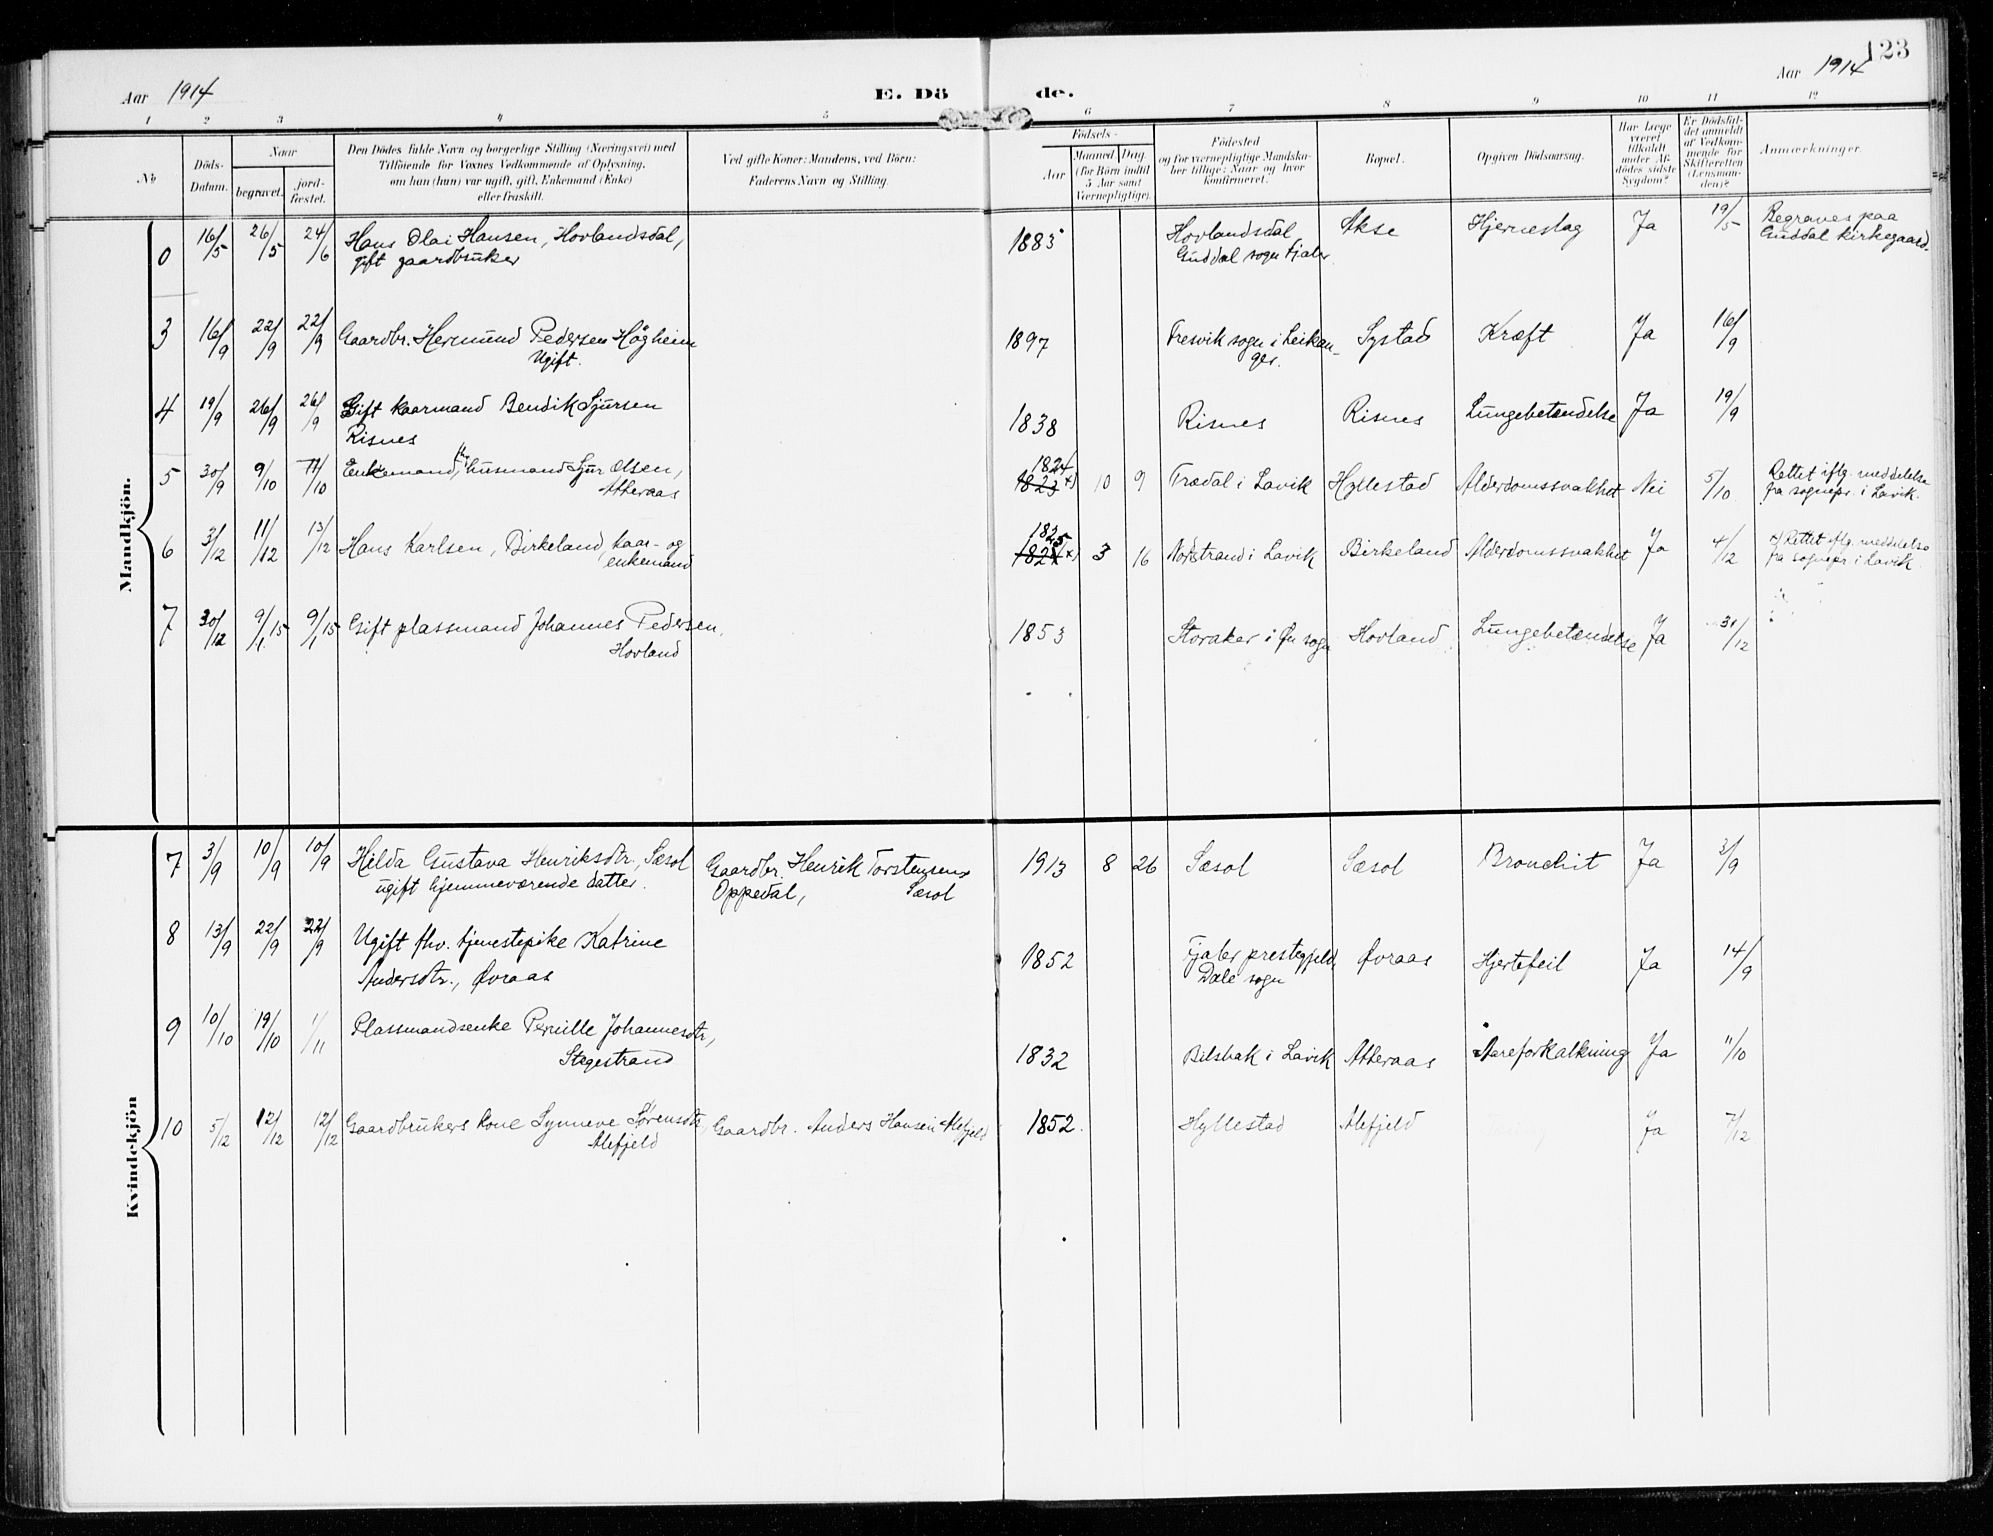 Aar 1914
E. Dö de.
Aar 1914
123
1 2 3 4 5 6 7 8 9 10 11 12
No
Döds-Datum.
Naar
begravet.
jord-fæstet.
Den Dödes fulde Navn og borgerlige Stilling (Næringsvei) med
Tilföiende for Voxnes Vedkommende af Oplysning,
om han (hun) var ugift, gift, Enkemand (Enke)
eller fraskilt.
Ved gifte Koner: Mandens, ved Börn:
Faderens Navn og Stilling.
Födsels-
Aar
Maaned Dag.
(for Börn indtil
5 Aar samt
Værnepligtige).
Födested
og for værnepligtige Mandska-
ber tillige: Naar og hvor
konfirmeret.
Bopæl.
Opgiven Dödsaarsag.
Har Læge
været
tilkaldt
under Af-
dödes sidste
Sygdom?
Er Dödsfal-
det anmeldt
af Vedkom-
mende for
Skifteretten
(Lensman-
den)?
Anmærkninger.
Mandkjön.
0 16/5 26/5 24/6 Hans Olai Hansen, Hovlandsdal, 1885 Hovlandsdal Akse Hjerneslag Ja 19/5 Begraves paa
gift gaardbruker Guddal sogn Fjaler Guddal kirkegaard.
3 16/9 22/9 22/9 Gaardbr. Hermund Pedersen Högheim 1897 Fresvik sogn i Leikan- Systad Kræft Ja 16/9
Ugift. ger.
4 19/9 26/9 26/9 Gift kaarmand Bendik Sjursen 1838 Risnes Risnes Lungebetændelse Ja 19/9
Risnes
1824
5 30/9 9/10 11/10 Enkemand, fhv. husmand Sjur Olsen, 1823 x) 10 9 Trædal i Lavik Hyllestad Alderdomssvakhet Nei 5/10 Rettet iflg. meddelelse
Atteraas fra sognepr. i Lavik.
1825
6 3/12 11/12 13/12 Hans Karlsen, Birkeland, kaar- og 1824 x) 3 16 Nordstrand i Lavik Birkeland Alderdomssvakhet Ja 4/12 x) Rettet iflg. meddelelse
enkemand fra sognepr. i Lavik
7 30/12 9/1 15 9/1 15 Gift plassmand Johannes Pedersen, 1853 Storaker i Øn sogn Hovland Lungebetændelse Ja 31/12
Hovland
Kvindekjön
7 3/9 10/9 10/9 Hilda Gustava Henriksdtr., Sæsol Gaardbr. Henrik Torstensen 1913 8 26 Sæsol Sæsol Bronchit Ja 3/9
ugift hjemmeværende datter. Oppedal, Sæsol
8 13/9 22/9 22/9 Ugift fhv. tjenestepike Katrine 1852 Fjaler prestegjeld, Øvraas Hjertefeil Ja 14/9
Andersdtr., Øvraas Dale sogn
9 10/10 19/10 1/11 Plassmandsenke Pernille Johannesdtr, 1832 Bilsbak i Lavik Atteraas Aareforkalkning Ja 11/10
Stegestrand
10 5/12 12/12 12/12 Gaardbrukers kone Synneve Sørensdtr, Gaardbr. Anders Hansen Alefjeld 1852. Hyllestad Alefjeld Ja 7/12
Alefjeld